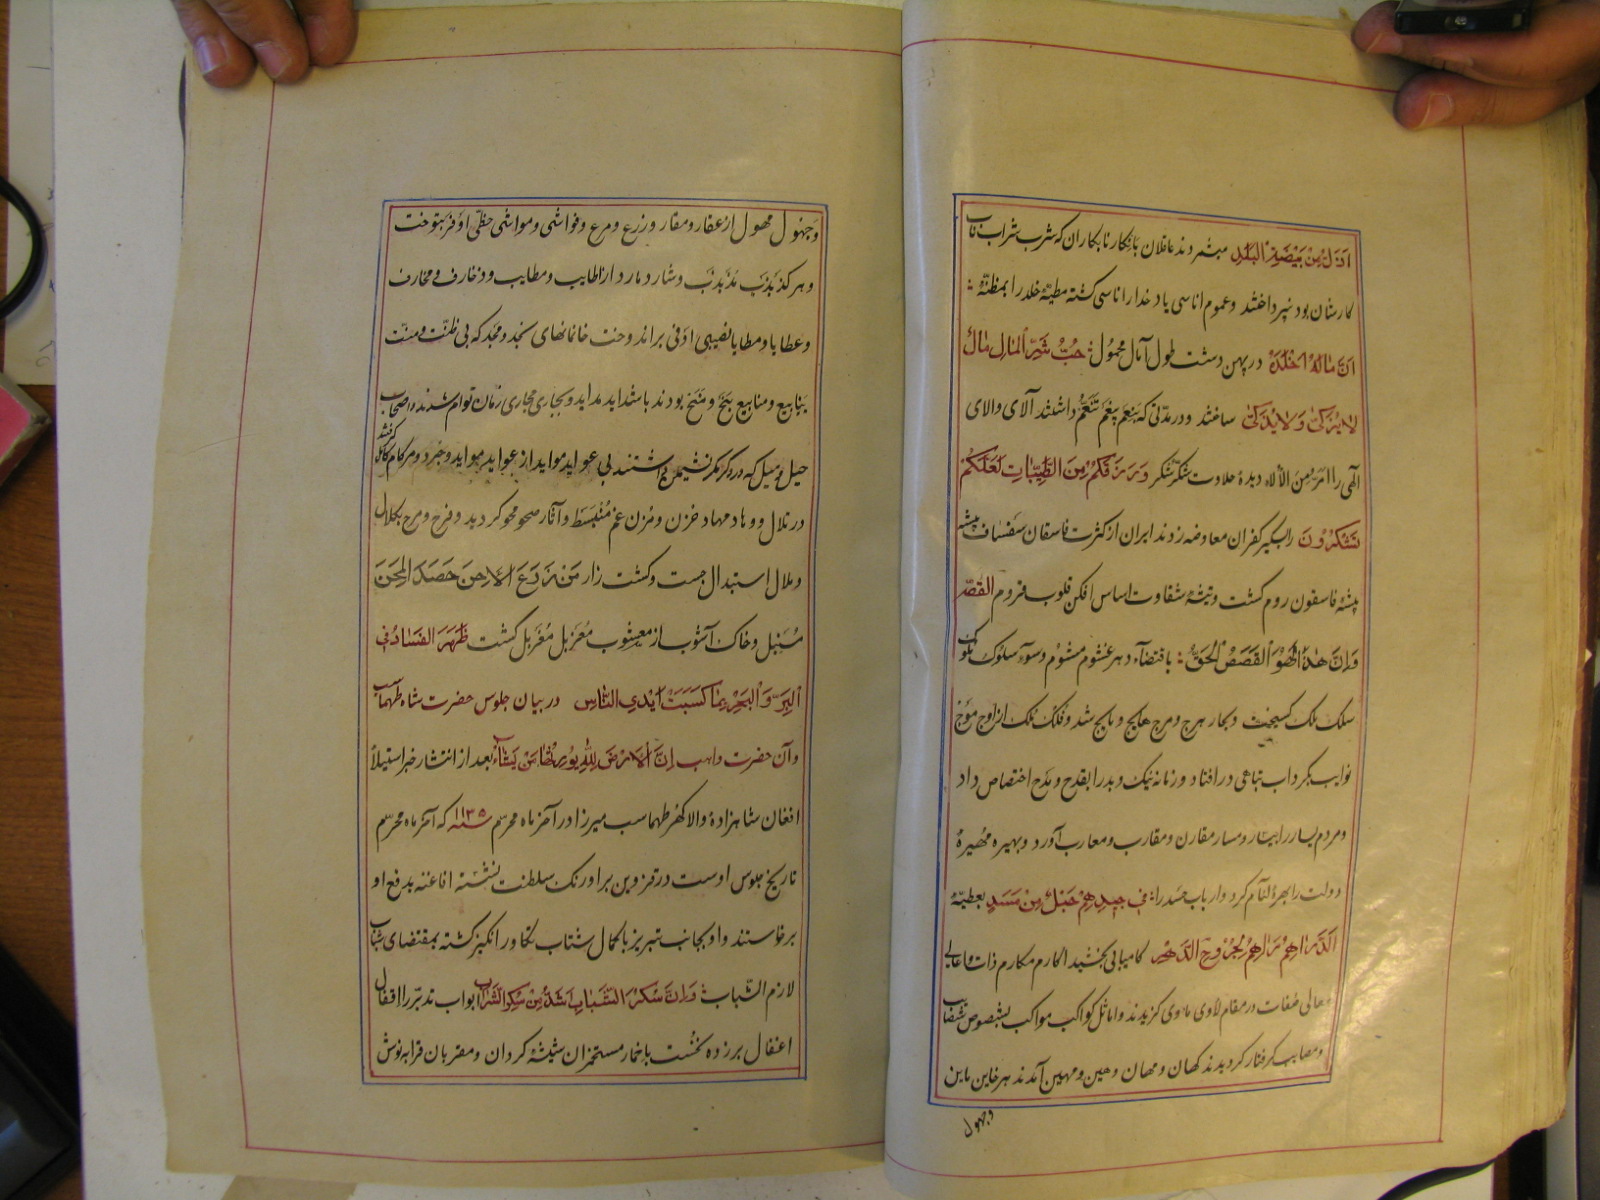 اذل من بیضة البلد میشمردند عاقلان بانکار نابکاران که شرب شراب ناب
کارشان بود نپرداختند و عموم اناسی یاد خدا را ناسی کشته مطیهٔ خلد را بمظنّهٔ
انّ ماله اخلده در پهن دشت طول آمال محمول حبّ شرّ المال مالك
لا یزکی و لا یذکی ساختند و در مدّتی که بنعم تنعّم داشتند آلای والای
آلهی را امرّ من الألاء دیدهٔ حلاوت شکر شکر و رزقکم من الطیّبات لعلّکم
تشکرون را بکبر کفران معاوضه زدند ایران از کثرت فاسقان
پیشهٔ فاسقون روم کشت و تیشهٔ شقاوت اساس افکن قلوب مردم القصّه
و انّ هذا لهو القصص الحقّ باقتضاء دهر غشوم مشؤم و سوء سلوك ملوك
سلك ملك کسیخت و بحار هرج و مرج هایج و مایج شد و فلك فلك از اوج موج
نوایب بکرداب تباهی در افتاد و زمانه نیك و بد را بقدح و مدح اختصاص داد
و مردم یسار را بیسار و مسار مقارن و مقارب و معارب آورد و بهیره مهیرهٔ
دولت را بهرهٔ لئام کرد و ارباب حسد را فی جیدهم حبل من مسد بعطیّهٔ
کامیابی بخشید اکارم مکارم ذات و اعالی
معالی صفات در مقام لاوی ماوی کزیدند و اماثل کواکب مواکب
و مصایب کرفتار کردیدند کهان و مهان و هین و مهین آمدند هر خاین ماین
و جهول
و جهول مهول از عقار و مقار و زرع و مرع و فواشی و مواشی حظّی اوفر
و هر کذبذب مذبذب و شارد مارد از اطایب و مطایب و زخارف و مخارف
و عطایا و مطایا نصیبی اوفی برآندوخت خانمانهای که بی ظنّت و منّت
ینابیع و منابیع و منح بودند با شداید مداید و بجاری مجاری زمان توام شدند و اصحاب
حیل و میل که در دکر مکر نشیمن داشتند بی عواید مواید از عواید مواید و
در تلال و وهاد مهاد حزن و مزن غم منبسط و آثار صحو محو کردید و فرح و مرح بکلال
و ملال استبدال جست و کشت زار من زرع الاحن حصد المحن
مسنبل و خاك آشوب از معیشوب مغزبل مغربل کشت ظهر الفساد فی
البرّ و البحر بما کسبت ایدی النّاس در بیان جلوس حضرت شاه طهماسب
و آن حضرت واهب انّ الارض لله یورثها من یشاء بعد از انتشار خبر استیلأ
افغان شاهزادهٔ والا کهر طهماسب میرزا در آخر ماه محرّم سنه ۱۱۳۵ که آخر ماه محرّم
تاریخ جلوس اوست در قزوین بر اورنك سلطنت نشسته افاغنه بدفع او
برخاستند و او بجانب تبریز با کمال شتاب تکاور انکیز کشته بمقتضای شباب
لازم التّباب و انّ سکر الشّباب اشدّ من سکر الشّراب ابواب تدبّر را اقفال
اغفال بر زده نخست با خمار مستخمران شیشهٔ کردان و مقربان قرابه نوش